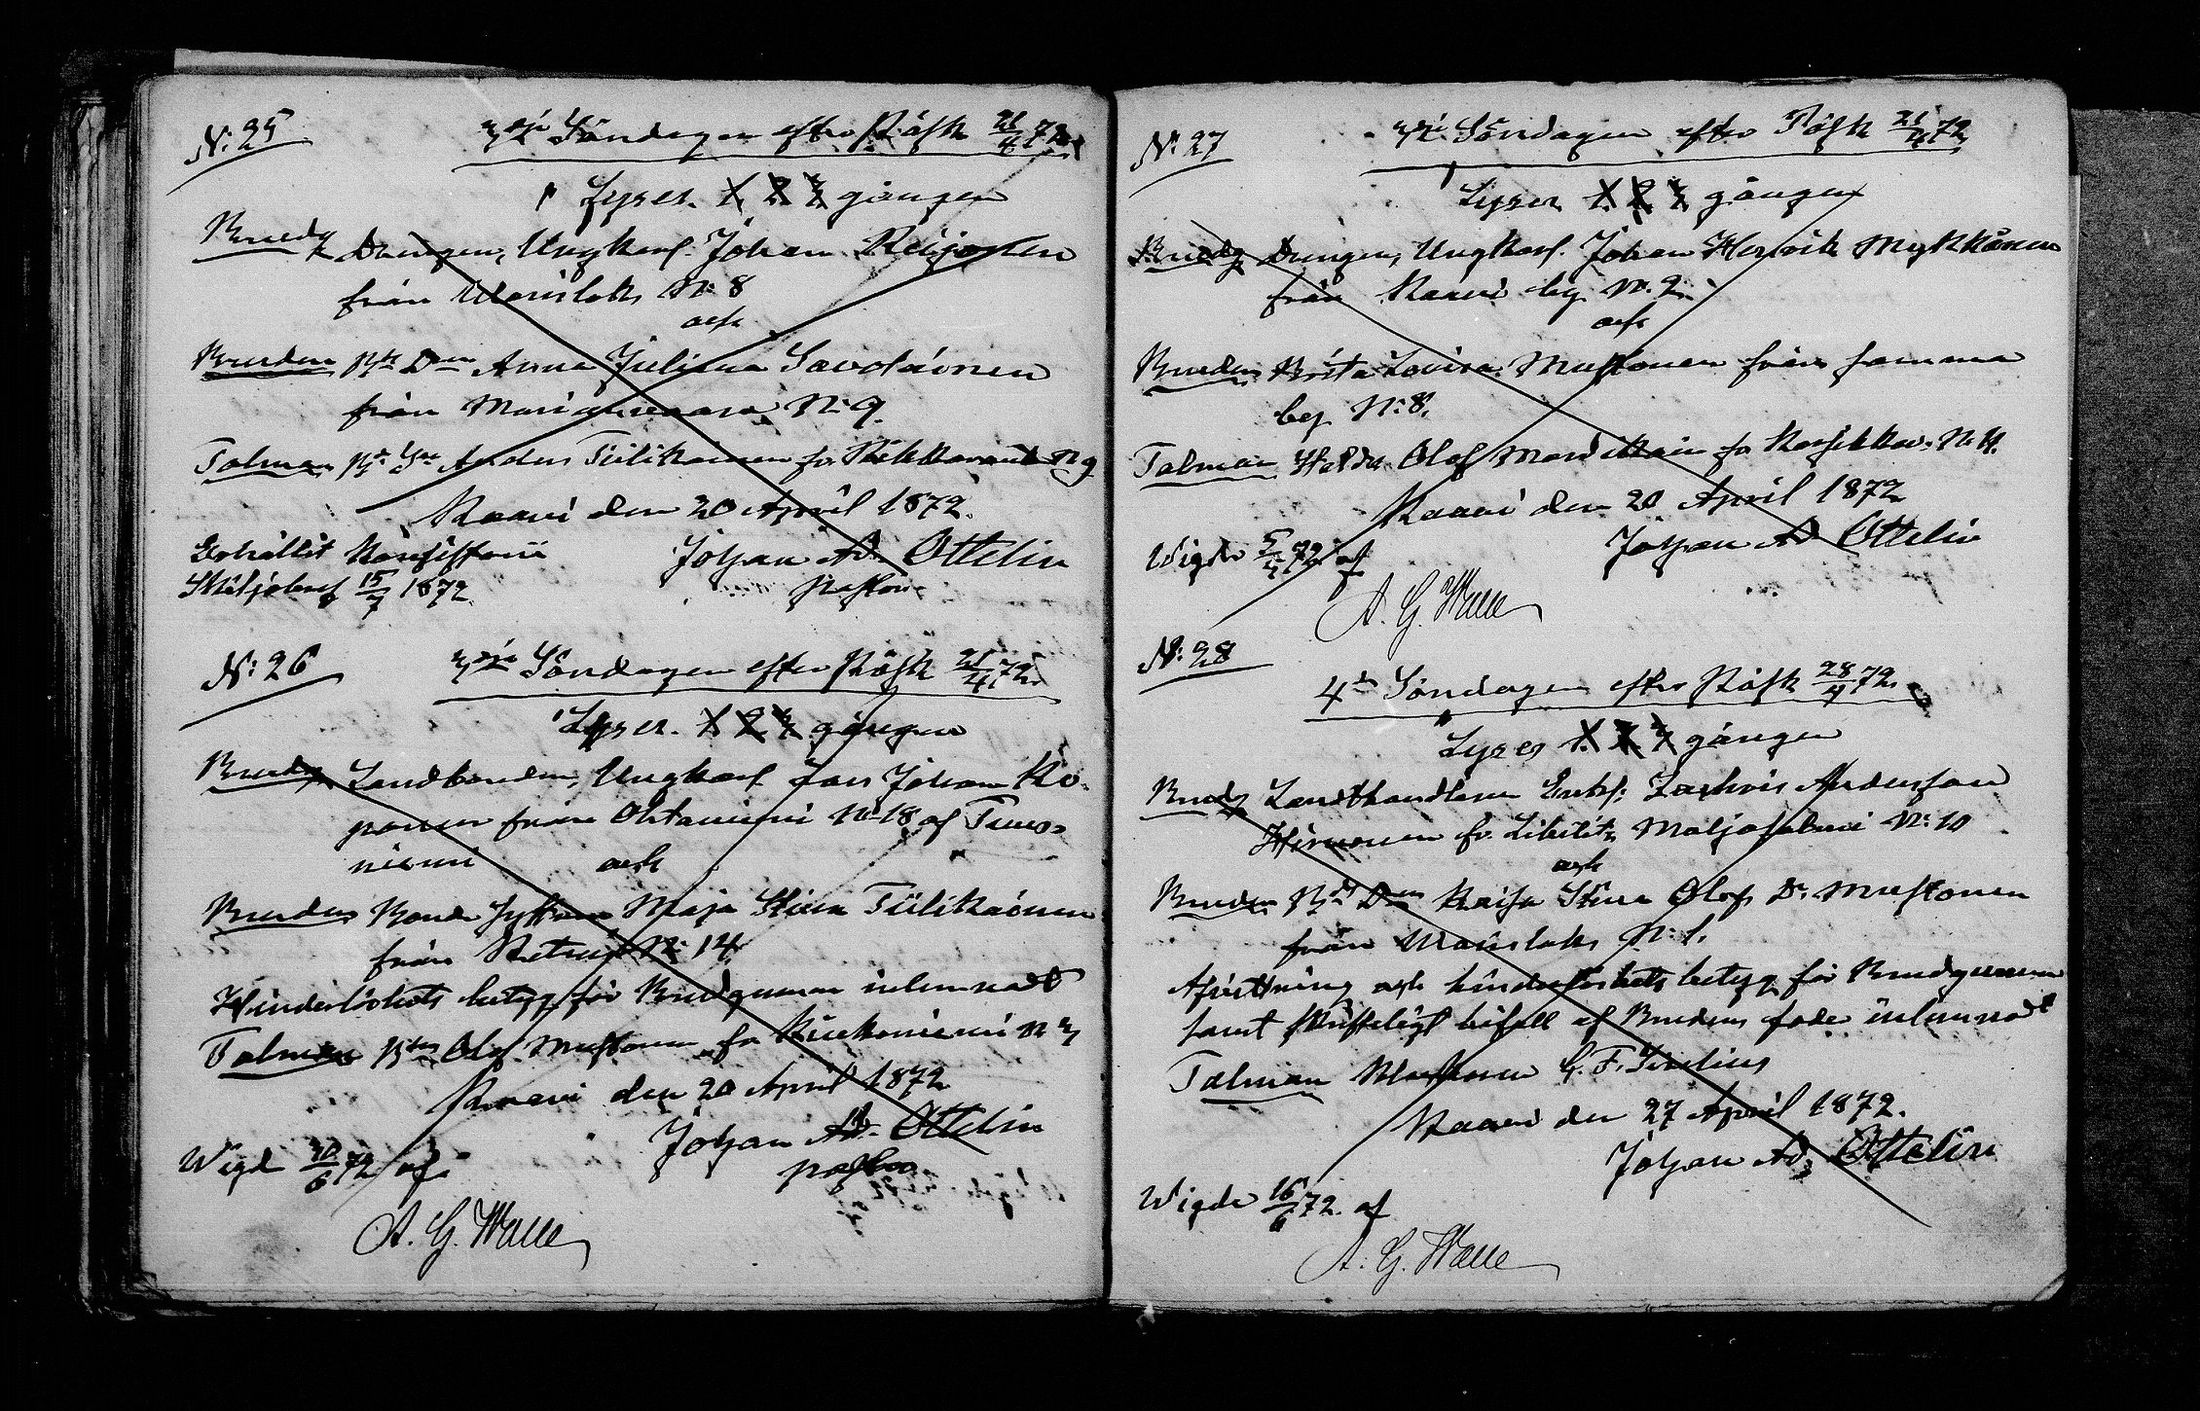 N: 25
3dje Söndagen efter Påsk 21/4 72
Lyses 1, 2, 3 gången
Brudg Drengen, Ungkarl. Johan Reijonen
från Vainolaks N: 8
och
Bruden Bde Dn Anna Juliana Savolainen
från Marianvaara N: 9
Talman Bde Sn Anders Tiilikainen fr. N 9
Kaavi den 20 April 1872.
Johan Ad. Ottelin
Pastor
Erhållit
Skiljobref 15/7 1872
N: 26
3dje Söndagen efter Påsk 21/4 72
Lyses 1 2 3 gången
Brudg Landbonden, Ungkarl Lars Johan Ko-
ponen från Ohtaniemi N 18 af Tuus-
niemi och
Bruden Bonde Maja Stina Tiilikainen
från Retuni N: 14
Hinderlöshets betyg för Brudgummen inlemnadt
Talman Bden Olof Mustonen fr N 3
Kaavi den 20 April 1872
Johan Ad. Ottelin
pastor
Wigd 30/6 72 af
A. G. Walle
N: 27
3dje Söndagen efter Påsk 21/4 72
Lyses 1. 2. 3 gången
Brudg Drengen, Ungkarl. Johan Henrik Mykkänen
från Kaavi by N. 2.
och
Bruden Brita Lovisa Mustonen från samma
by N: 8.
Talman Olof fr N: 4.
Kaavi den 20 April 1872
Johan Ad Ottelin
Wigde 72 af
A. G. Walle
N: 28
4de Söndagen efter Påsk 28/4 72
Lyses 1. 2. 3 gången
Brudg Landthandlaren Enkl: Zachris Andersson
Hirvonen fr. Libelitz Maljasalmi N: 10
och
Bruden Bde Dn Kaisa Stina Olofs Dr Mustonen
från Vainolaks N: 1.
Afvittring och hinderlöshets betyg för Brudgummen
samt skriftligt bifall af Brudens fader inlemnadt
Talman G. F.
Kaavi den 27 April 1872.
Johan Ad. Ottelin
Wigde 16/6 72. af
A. G. Walle